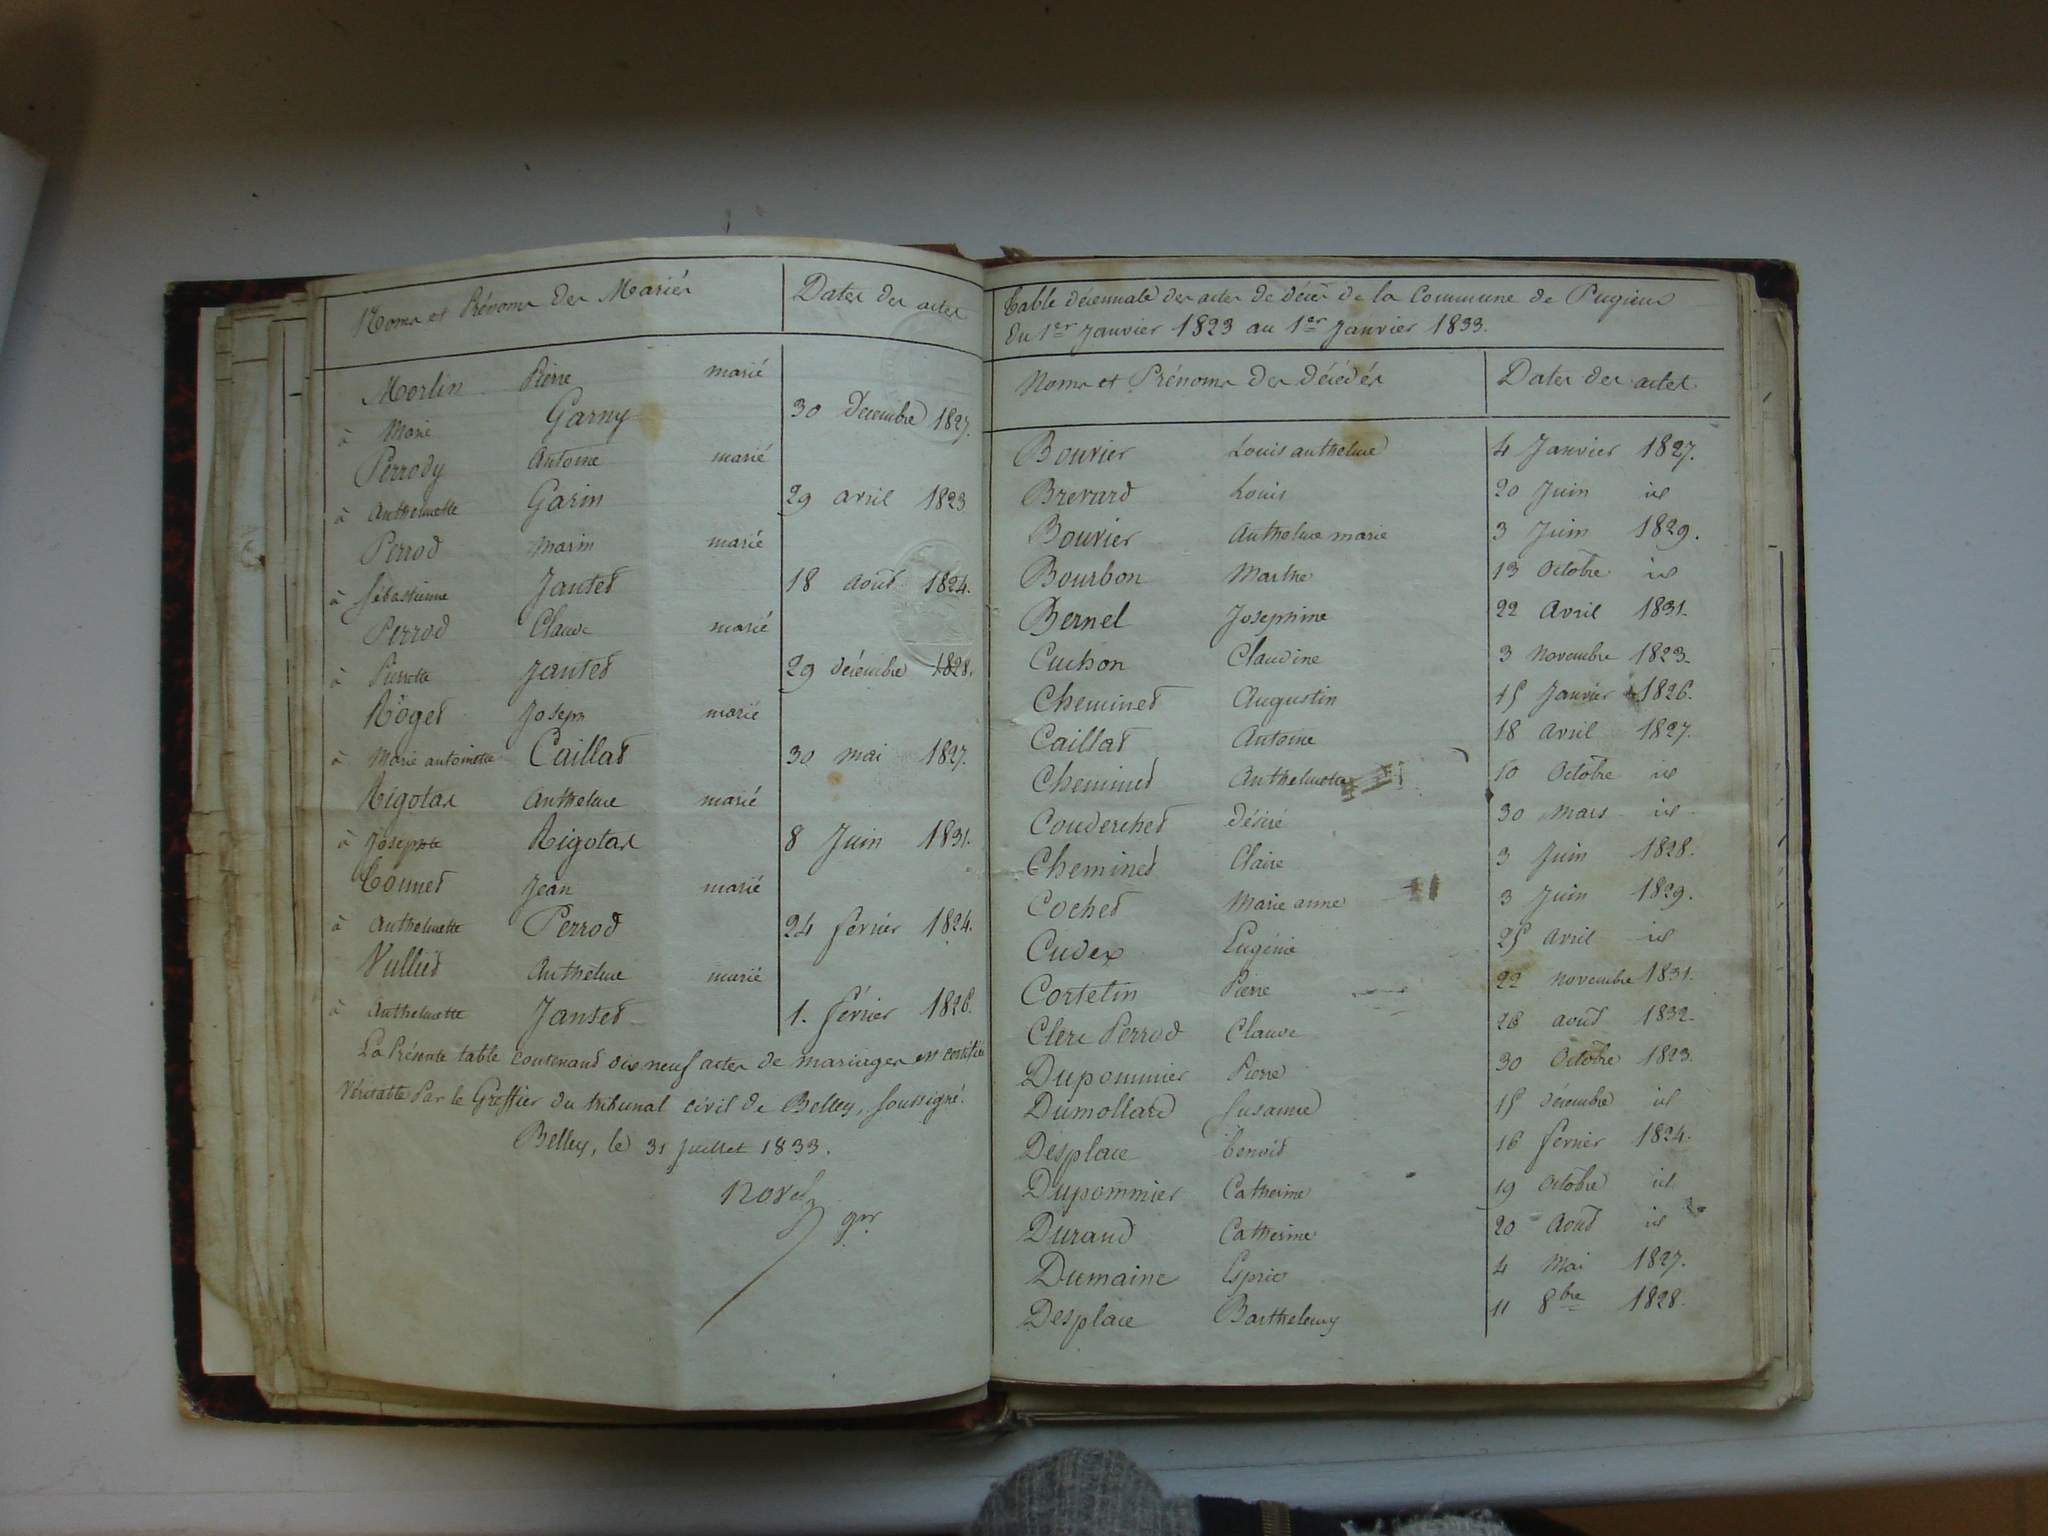 Noms et Prénoms des Mariés Dates des actes
Morlin Pierre marié
à Marie Garny 30 décembre 1827.
Perrody Antoine marié
à Anthelmette Garin 29 avril 1823
Perrod Marin marié
à Sébastienne Jantet 18 août 1824.
Perrod Claude marié
à Pierrette Jantet 29 décembre 1828.
Roget Joseph marié
à Marie antoinette Caillat 30 mai 1827.
Rigolat Anthelme marié
à Josephte Rigolat 8 Juin 1831.
Tournet Jean marié
à Anthelmette Perrod 24 février 1824.
Vulliet Anthelme marié
à Anthelmette Jantet 1. février 1826.
La Présente table contenant dix neuf actes de mariages est certifiée
Véritable Par le Greffier du tribunal civil de Belley, soussigné.
Belley, le 31 juillet 1833.
gier
Table décennale des actes de décès de la Commune de Pugieux
Du 1er Janvier 1823 au 1er Janvier 1833.
Noms et Prénoms des décédés Dates des actes
Bouvier Louis anthelme 4 Janvier 1827.
Brevard Louis 20 Juin id
Bouvier Anthelme marie 3 Juin 1829.
Bourbon Marthe 13 Octobre id
Bernel Josephine 22 Avril 1831.
Cuchon Claudine 3 Novembre 1823.
Cheminet Augustin 15 Janvier 1826.
Caillat Antoine 18 avril 1827.
Cheminet Anthelmette 10 Octobre id
Couderchet désiré 30 Mars id
Cheminet Claire 3 Juin 1828.
Cochet Marie anne 3 Juin 1829.
Cudex Eugénie 25 avril id
Cortelin Pierre 22 novembre 1831.
Clerc Perrod Claude 26 août 1832.
Dupommier Pierre 30 Octobre 1823.
Dumollard Susanne 15 décembre id
Desplace benoit 16 fevrier 1824.
Dupommier Catherine 19 Octobre id
Durand Catherine 20 Août id
Dumaine Esprit 4 Mai 1827.
Desplace Barthelemy 11 8bre 1828.